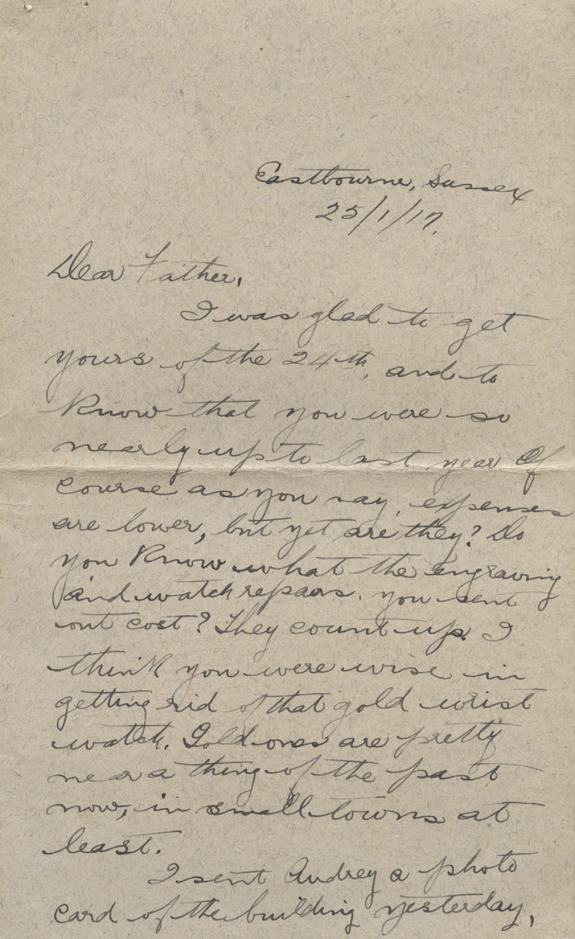 Eastbourne, Sussex
25/1/17.
Dear Father,
I was glad to get
yours of the 24th, and to
know that you were so
nearly up to last year Of
course as you say, expenses
are lower, but yet are they? Do
you know what the engraving
and watch repairs, you sent
out cost? They count up. I
think you were wise in
getting rid of that gold wrist
watch. Gold ones are pretty
near a thing of the past
now, in small towns at
least.
I sent Audrey a photo
card of the building yesterday,